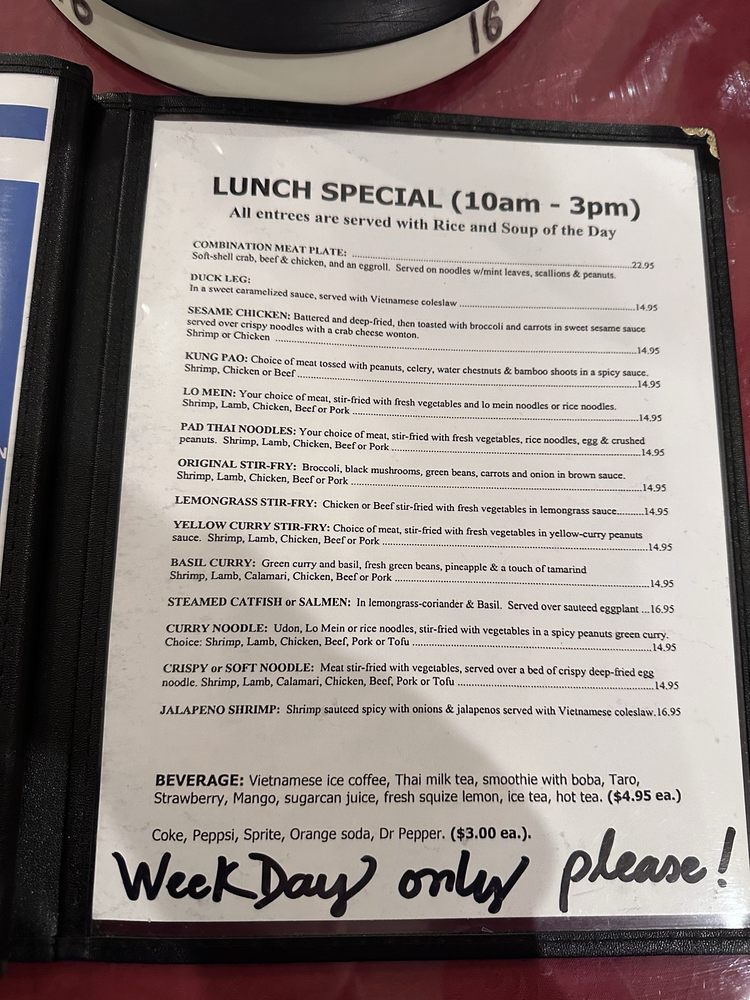 6
16
N
LUNCH SPECIAL (10am - 3pm)
All entrees are served with Rice and Soup of the Day
COMBINATION MEAT PLATE: ..........22.95
Soft-shell crab, beef & chicken, and an eggroll. Served on noodles w/mint leaves, scallions & peanuts.
DUCK LEG:
In a sweet caramelized sauce, served with Vietnamese coleslaw ..........14.95
SESAME CHICKEN: Battered and deep-fried, then toasted with broccoli and carrots in sweet sesame sauce
served over crispy noodles with a crab cheese wonton.
Shrimp or Chicken ..........14.95
KUNG PAO: Choice of meat tossed with peanuts, celery, water chestnuts & bamboo shoots in a spicy sauce.
Shrimp, Chicken or Beef ..........14.95
LO MEIN: Your choice of meat, stir-fried with fresh vegetables and lo mein noodles or rice noodles.
Shrimp, Lamb, Chicken, Beef or Pork ..........14.95
PAD THAI NOODLES: Your choice of meat, stir-fried with fresh vegetables, rice noodles, egg & crushed
peanuts. Shrimp, Lamb, Chicken, Beef or Pork ..........14.95
ORIGINAL STIR-FRY: Broccoli, black mushrooms, green beans, carrots and onion in brown sauce.
Shrimp, Lamb, Chicken, Beef or Pork ..........14.95
LEMONGRASS STIR-FRY: Chicken or Beef stir-fried with fresh vegetables in lemongrass sauce.......14.95
YELLOW CURRY STIR-FRY: Choice of meat, stir-fried with fresh vegetables in yellow-curry peanuts
sauce. Shrimp, Lamb, Chicken, Beef or Pork ..........14.95
BASIL CURRY: Green curry and basil, fresh green beans, pineapple & a touch of tamarind
Shrimp, Lamb, Calamari, Chicken, Beef or Pork ..........14.95
STEAMED CATFISH or SALMEN: In lemongrass-coriander & Basil. Served over sauteed eggplant ...16.95
CURRY NOODLE: Udon, Lo Mein or rice noodles, stir-fried with vegetables in a spicy peanuts green curry.
Choice: Shrimp, Lamb, Chicken, Beef, Pork or Tofu ..........14.95
CRISPY or SOFT NOODLE: Meat stir-fried with vegetables, served over a bed of crispy deep-fried egg
noodle. Shrimp, Lamb, Calamari, Chicken, Beef, Pork or Tofu ..........14.95
JALAPENO SHRIMP: Shrimp sauteed spicy with onions & jalapenos served with Vietnamese coleslaw.16.95
BEVERAGE: Vietnamese ice coffee, Thai milk tea, smoothie with boba, Taro,
Strawberry, Mango, sugarcan juice, fresh squize lemon, ice tea, hot tea. ($4.95 ea.)
Coke, Peppsi, Sprite, Orange soda, Dr Pepper. ($3.00 ea.).
WeekDay only please!